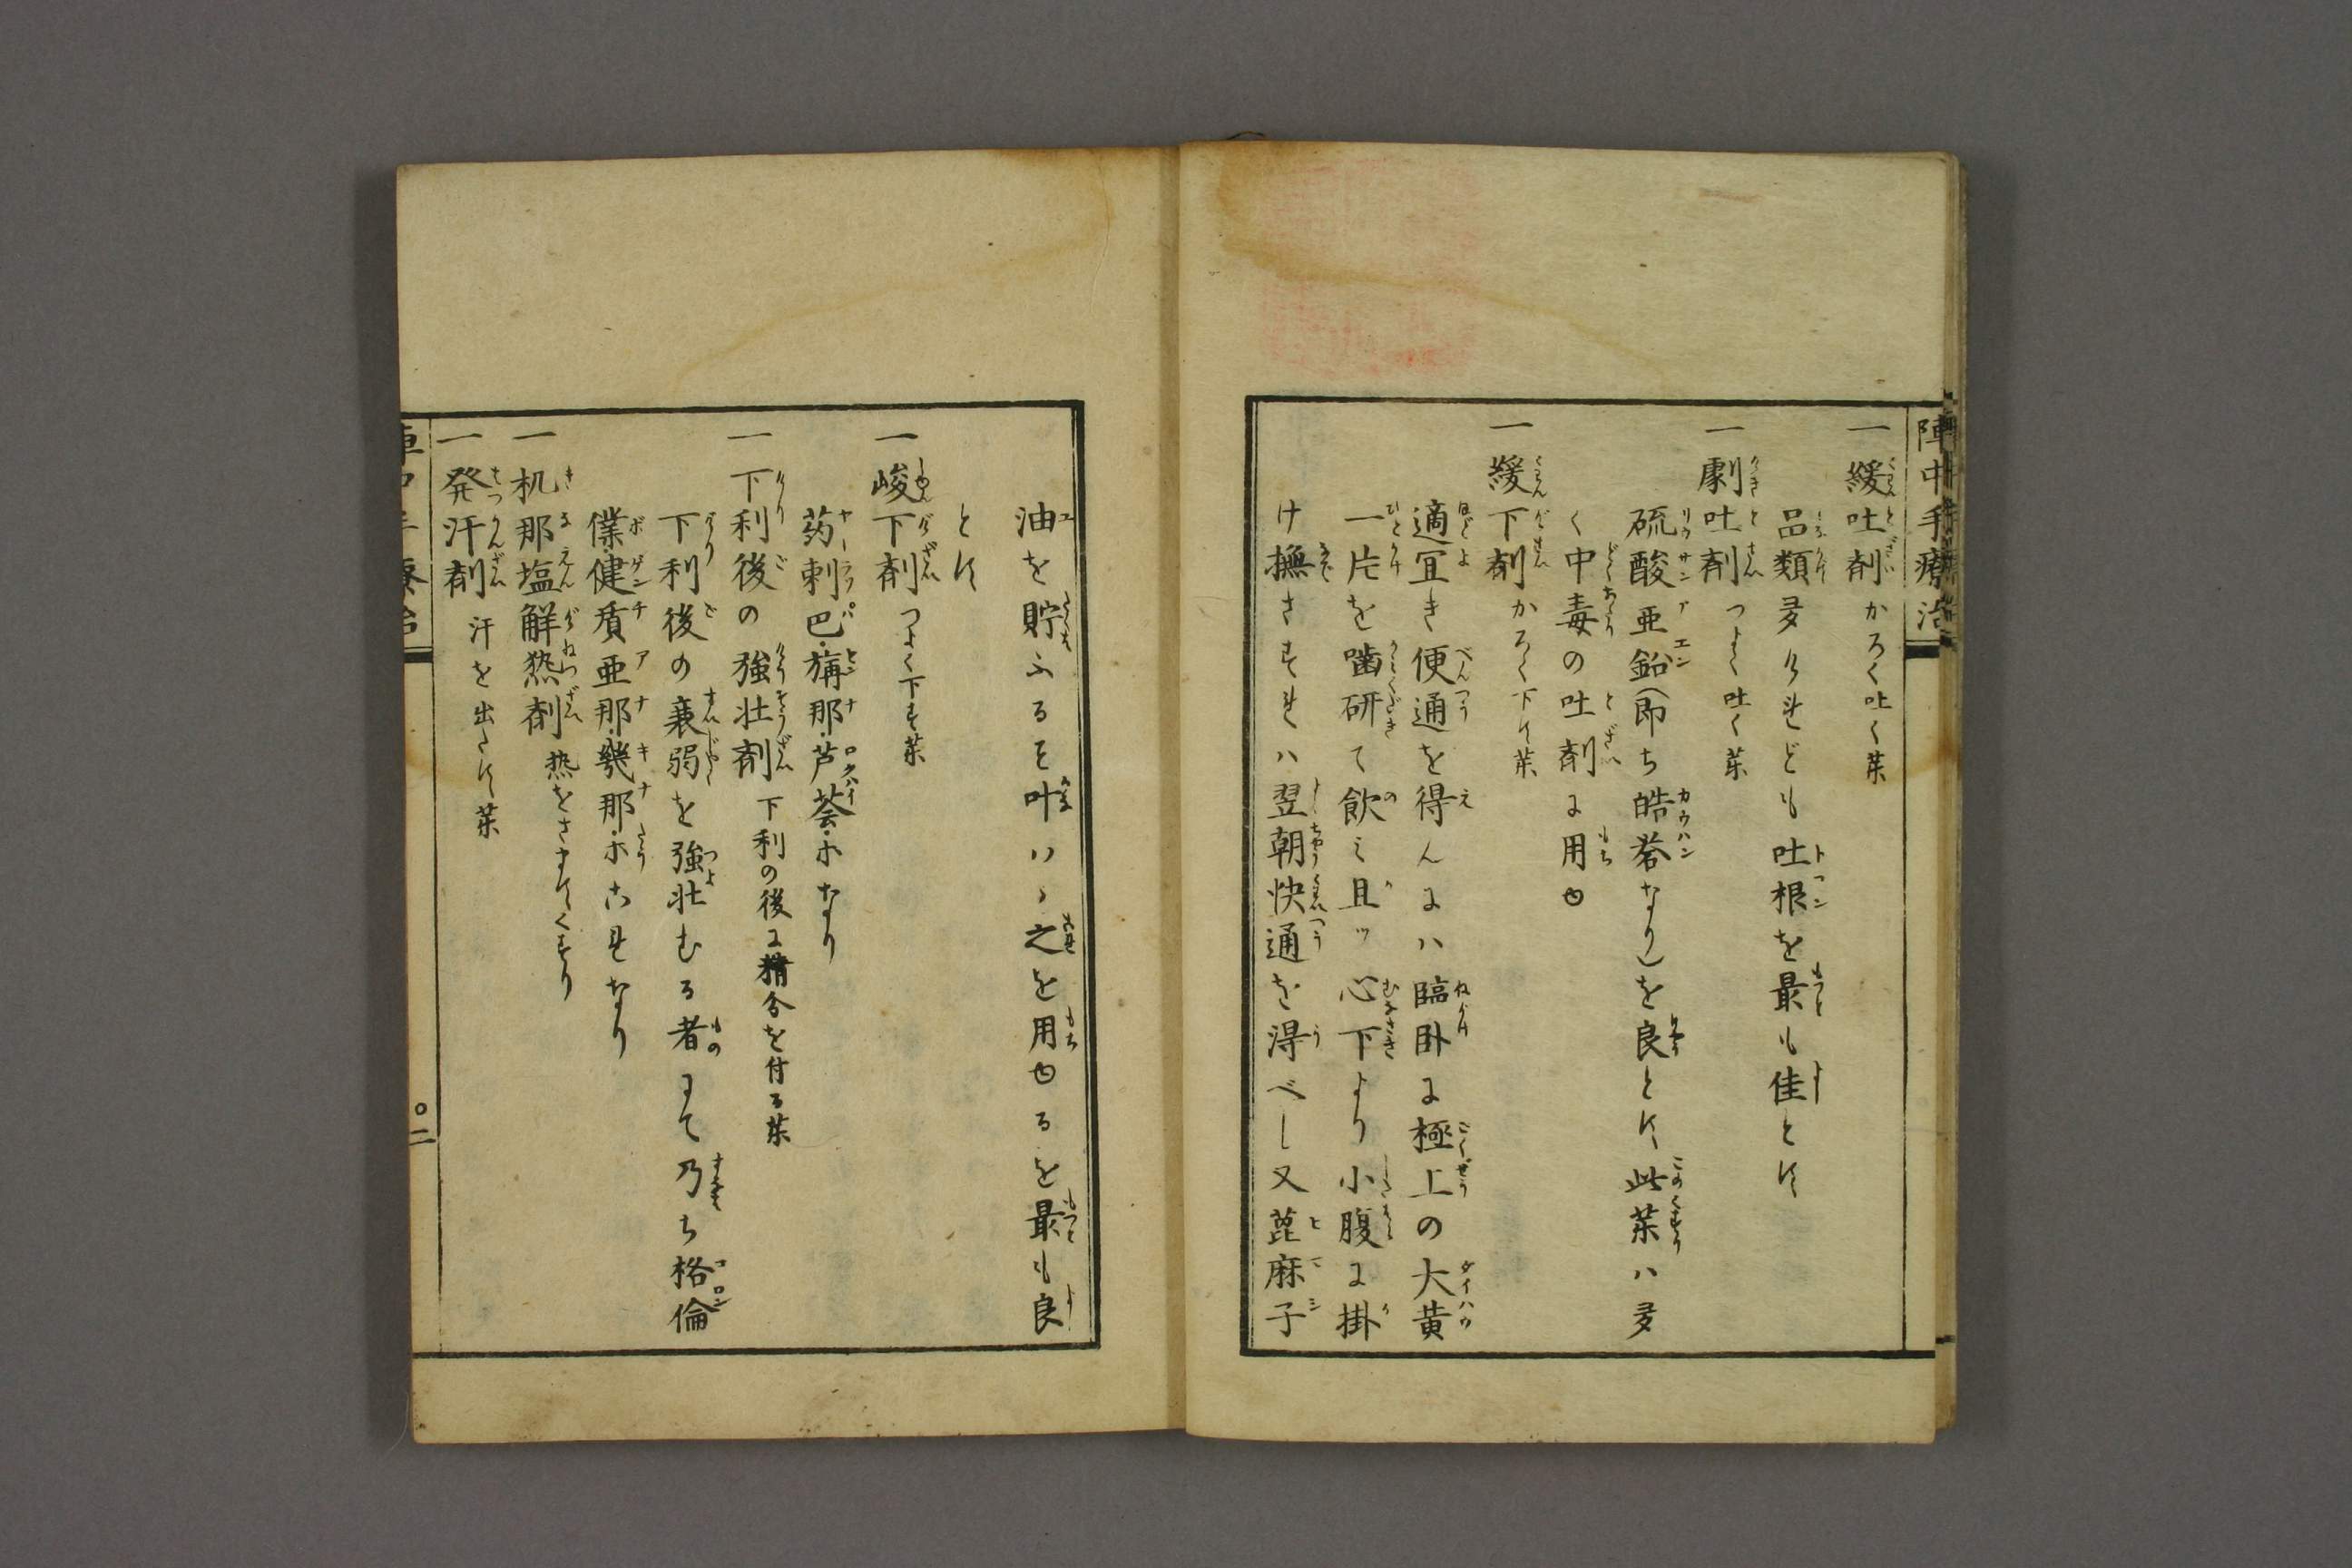 陣中手療治
一緩吐剤 かろく吐く薬
品類多けれども吐根を最も佳とす
一劇吐剤 つよく吐く薬
硫酸亜鉛(即ち皓礬なり)を良とす此薬ハ多
く中毒の吐剤に用ゆ
一緩下剤 かろく下す薬
適宜き便通を得んにハ臨卧に極上の大黄
一片を噛研て飲み且ッ心下より小腹に掛
け撫さすれハ翌朝快通を得べし又蓖麻子
油を貯ふるを叶ハヽ之を用ゆるを最も良
とす
一峻下剤 つよく下す薬
葯剌巴・旃那・芦薈・ホなり
一下利後の強壮剤 下利の後に精分を付る薬
下利後の衰弱を強壮むる者にて乃ち格倫
僕・健質亜那・幾那・ホこれなり
一机那塩解熱剤 熱をさますくすり
一発汗剤 汗を出たす薬
〇二